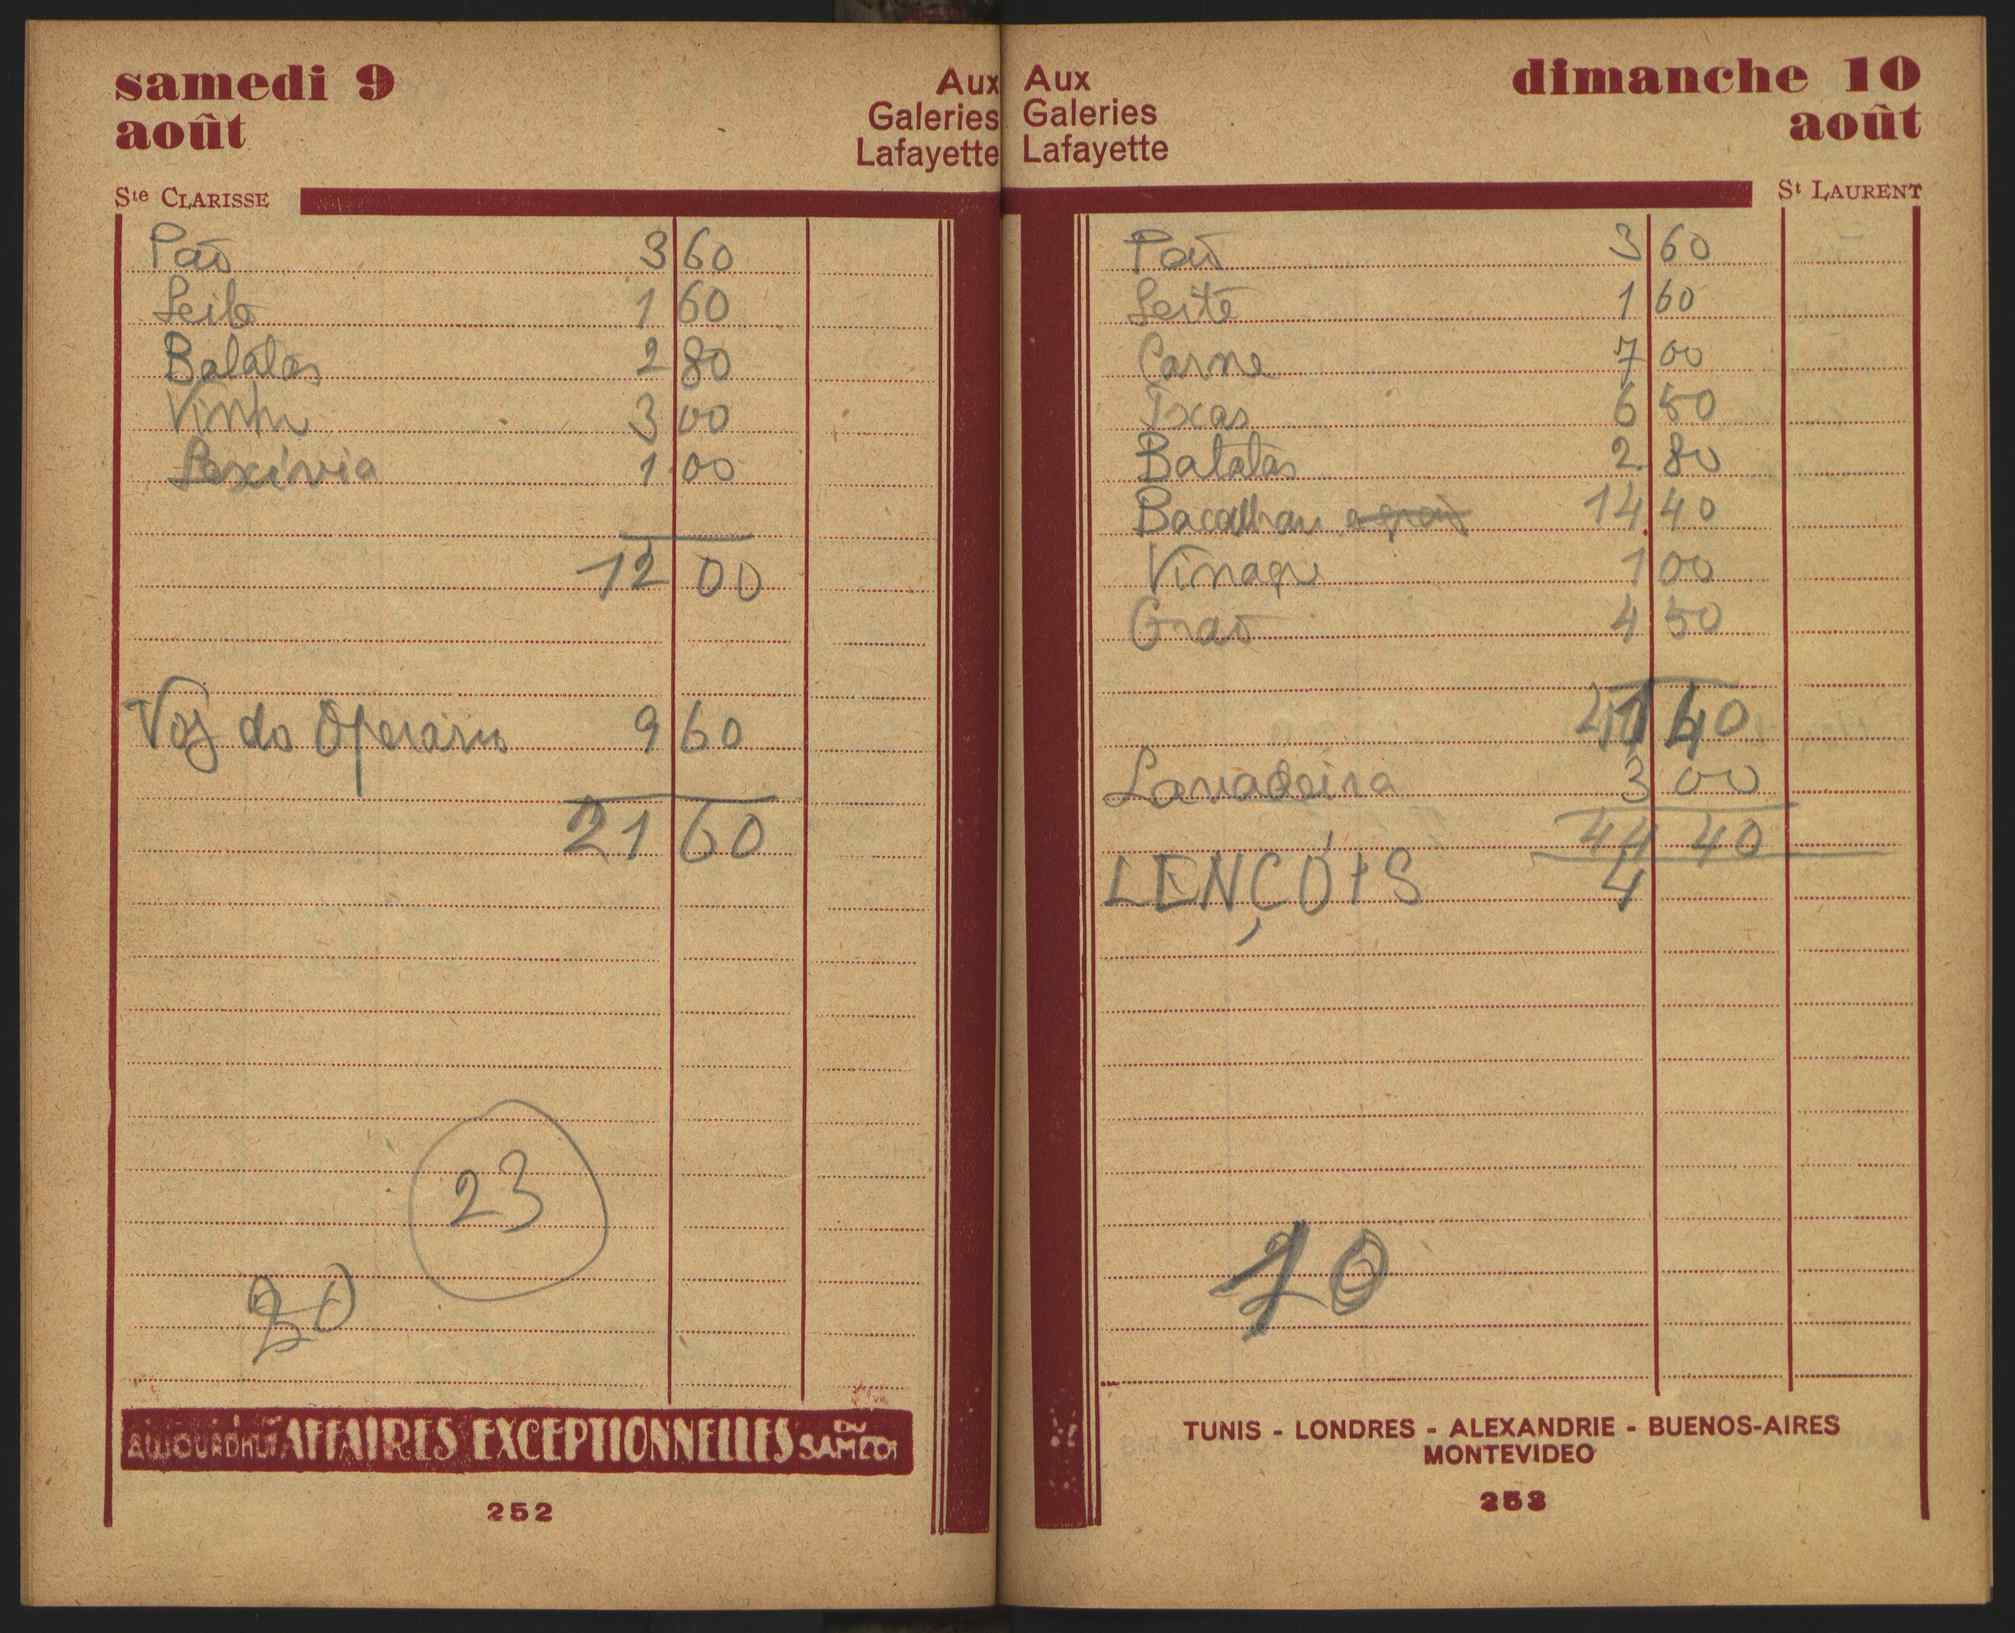 samedi 9
août
Aux
Galeries
Lafayette
Ste CLARISSE
Pão 3 60
Leite 1 60
Batatas 2 80
Vinho 3 00
Lexívia 1 00
12 00
Voz do Operário 9 60
21 60
23
AUJOURD'HUI AFFAIRES EXCEPTIONNELLES DU SAMEDI
252
Aux
Galeries
Lafayette
dimanche 10
août
St LAURENT
Pão 3 60
Leite 1 60
Carne 7 00
Iscas 6 50
Batatas 2 80
Bacalhau 14 40
Vinagre 1 00
Grão 4 50
41 40
Lavadeira 3 00
44 40
LENÇÓIS 4
TUNIS - LONDRES - ALEXANDRIE - BUENOS-AIRES
MONTEVIDEO
253